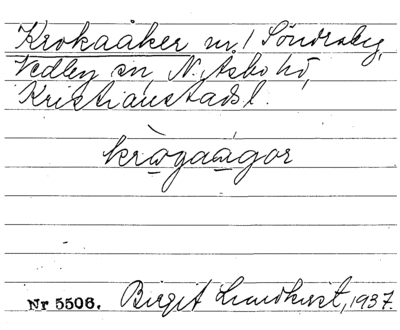 Krokaåker nr 1 Söndraby,
Vedby sn, N. Åsbo hd,
Kristianstads l.
krògaágor
Nr 5506. Birgit Lundkvist, 1937.